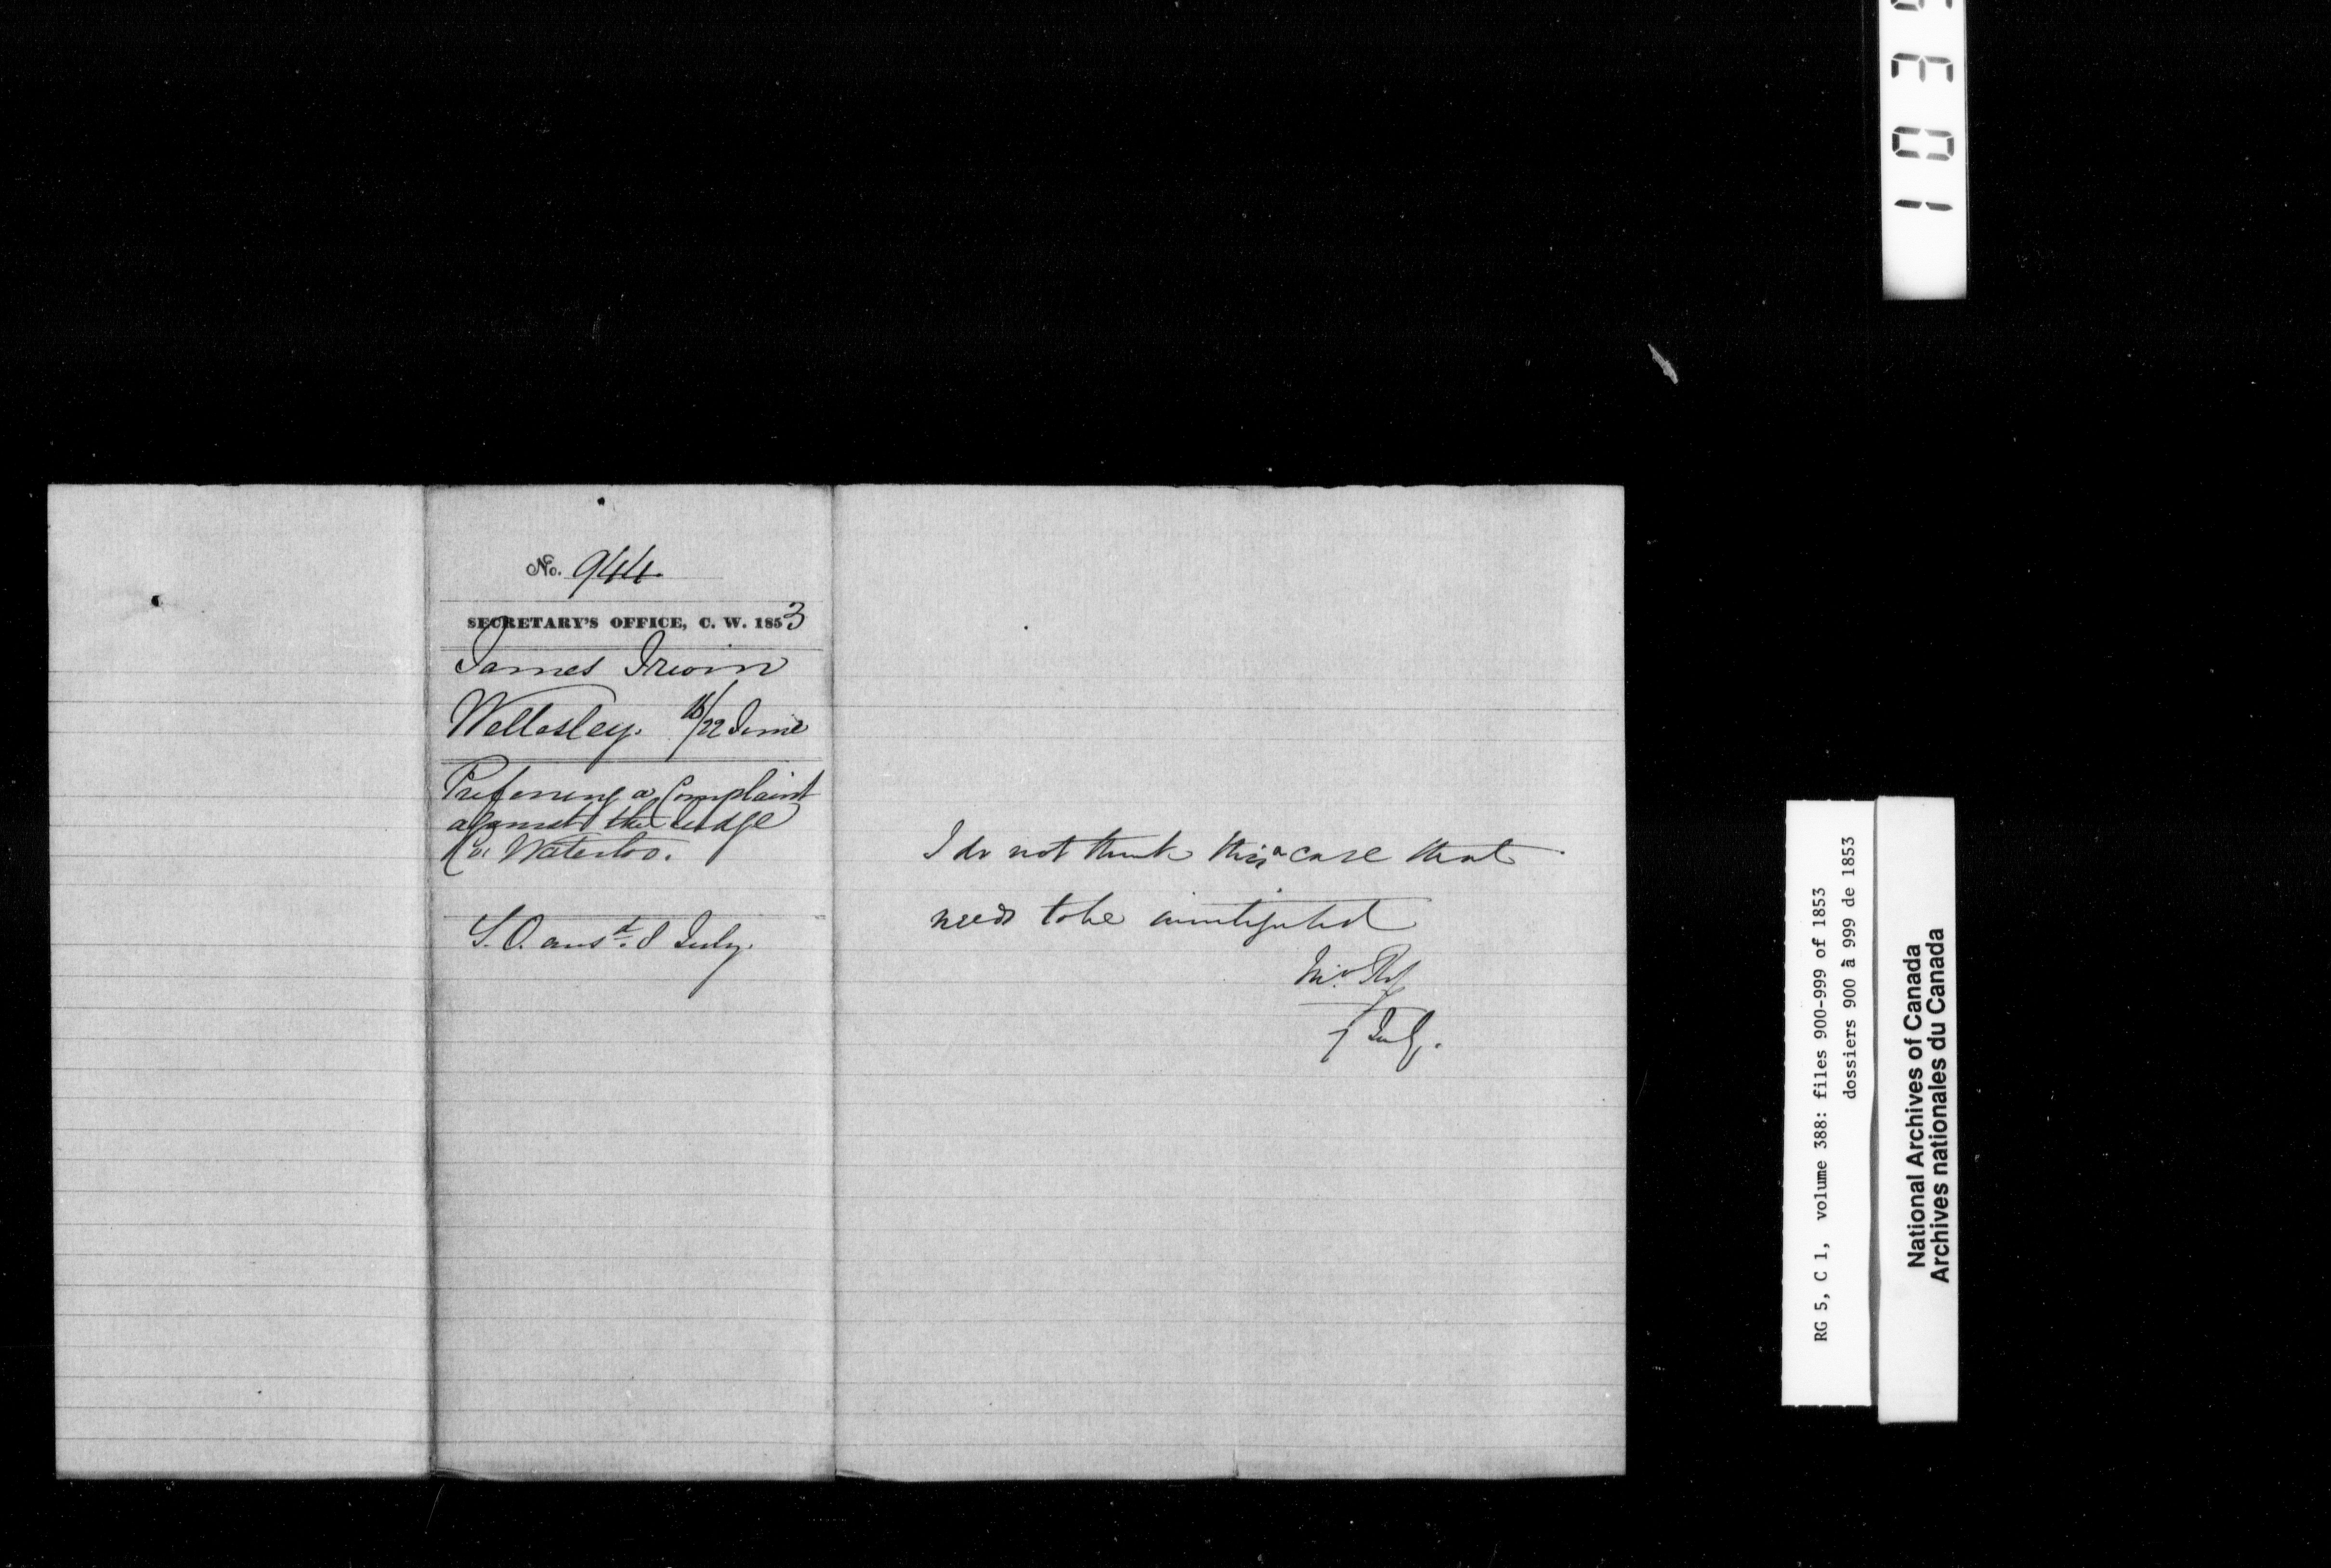 No. 944
SECRETARY'S OFFICE, C. W. 1853
James Irwin
Wellesley. 16/22 June
Preferring a Complaint
against the Judge
Co: Waterloo.
S. O. ansd. 8 July.
I do not think this a case that
needs to be investigated
7 July.
103
RG 5, C 1, volume 388: files 900-999 of 1853
dossiers 900 à 999 de 1853
National Archives of Canada
Archives nationales du Canada